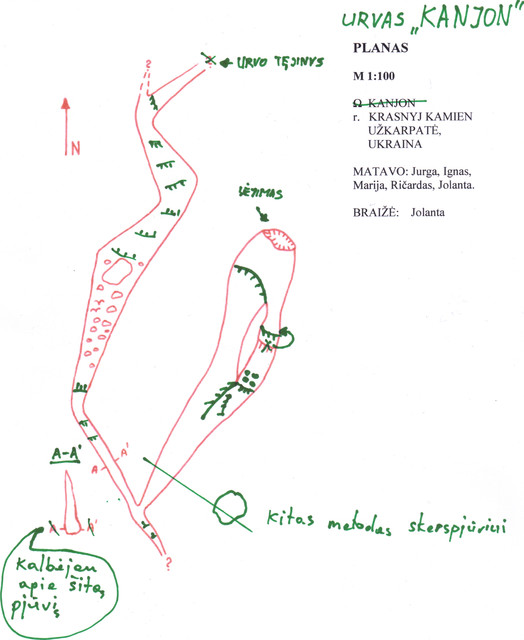 URVAS „KANJON"
PLANAS
M 1:100
Ω KANJON
r. KRASNYJ KAMIEN
UŽKARPATĖ,
UKRAINA
MATAVO: Jurga, Ignas,
Marija, Ričardas, Jolanta.
BRAIŽĖ: Jolanta
? ?
URVO TĘJINYS
N
A-A'
A A'
?
kitas metodas skerspjūviui
A A'
Kalbėjau
apie šitą
pjūvį